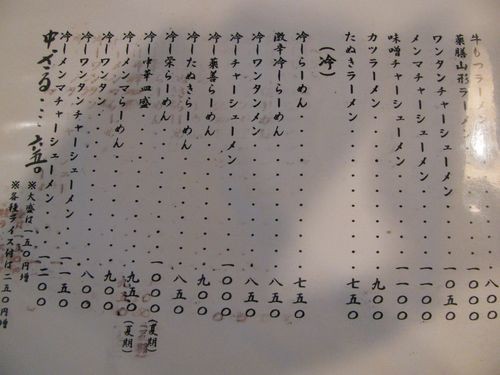 牛もつラーメン・・・八〇〇
薬膳山形ラーメン・・・
ワンタンチャーシューメン・・・一〇五〇
メンマチャーシューメン・・・一一〇〇
味噌チャーシューメン・・・一一〇〇
カツラーメン・・・九〇〇
たぬきラーメン・・・七五〇
(冷)
冷ーらーめん・・・七五〇
激辛冷ーらーめん・・・八五〇
冷ーワンタンメン・・・八五〇
冷ーチャーシューメン・・・一〇〇〇
冷ー薬善らーめん・・・九〇〇
冷ーたぬきらーめん・・・八五〇
冷ー栄らーめん・・・八五〇
冷ー中華皿盛・・・一〇〇〇(夏期)
冷ーメンマらーめん・・・九五〇(夏期)
冷ーワンタン・・・九〇〇
冷ーワンタンチャーシューメン・・・八〇〇
冷ーメンマチャーシューメン・・・一一五〇
中ざる・・・六五〇
一二〇〇
※大盛は一五〇円増
※各種ライス付は二五〇円増